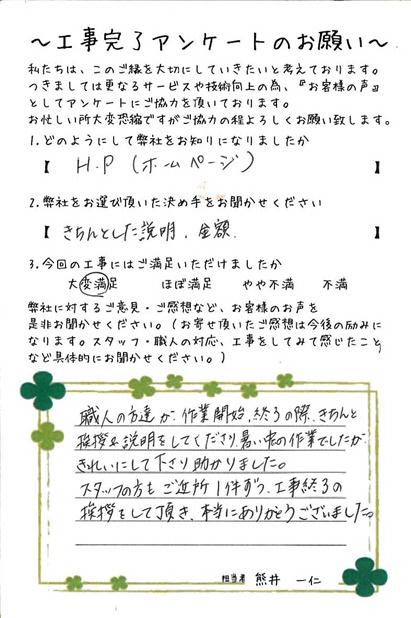 ～工事完了アンケートのお願い～
私たちは、このご縁を大切にしていきたいと考えております。
つきましては更なるサービスや技術向上の為、『お客様の声』
としてアンケートにご協力を頂いております。
お忙しい所大変恐縮ですがご協力の程よろしくお願い致します。
1.どのようにして弊社をお知りになりましたか
【 H.P (ホームページ) 】
2.弊社をお選び頂いた決め手をお聞かせください
【 きちんとした説明、金額、 】
3.今回の工事にはご満足いただけましたか
大変満足 ほぼ満足 やや不満 不満
弊社に対するご意見・ご感想など、お客様のお声を
是非お聞かせください。（お寄せ頂いたご感想は今後の励みに
なります。スタッフ・職人の対応、工事をしてみて感じたこと
など具体的にお聞かせください。）
職人の方達が、作業開始、終了の際、きちんと
挨拶&説明をしてくださり、暑い中の作業でしたが
きれいにして下さり助かりました。
スタッフの方も ご近所 1件ずつ、工事終了の
挨拶をして頂き、本当にありがとうございました。
担当者 熊井 一仁